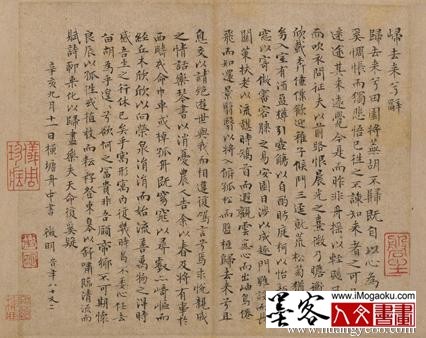 歸去來兮辭
歸去來兮田園將蕪胡不歸既自以心為
奚惆悵而獨悲悟已往之不諫知來者之可
迷途其未遠覺今是而昨非舟搖以輕颺風
而吹衣問征夫以前路恨晨光之熹微乃瞻衡
欣載奔僮僕歡迎稚子候門三逕就荒松菊猶
幼入室有酒盈樽引壺觴以自酌眄庭柯以怡
窓以寄傲審容膝之易安園日涉以成趣門雖設而常
關策扶老以流憩時矯首而遐觀雲無心而出岫鳥倦
飛而知還景翳翳以將入撫孤松而盤桓歸去來兮
息交以絕遊世與我而相遺復駕言兮焉求悅親戚
之情話樂琴書以消憂農人告余以春及將有事於
西疇或命巾車或棹孤舟既窈窕以尋壑亦崎嶇而
經丘木欣欣以向榮泉涓涓而始流善萬物之得時
感吾生之行休已矣乎寓形宇內復幾時曷不委心任去
留胡為乎遑遑兮欲何之富貴非吾願帝鄉不可期懷
良辰以孤往或植杖而耘耔登東皋以舒嘯臨清流而
賦詩聊乘化以歸盡樂夫天命復奚疑
辛亥九月十一日橫塘舟中書 徵明 時年八十又二
墨客
www.iMogaoku.com
人文書畫
www.huangyecoo.com